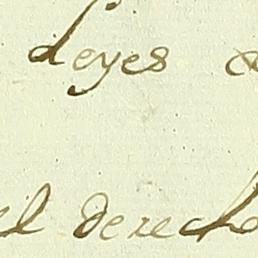 leyes
el derecho